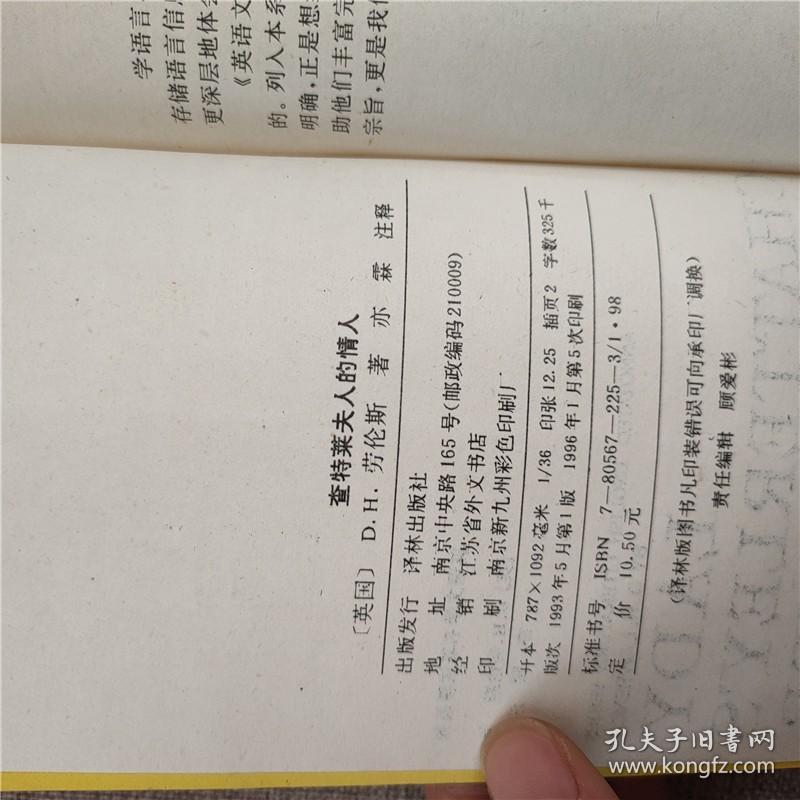 学语言
存储语言信息
更深层地体会
《英语文
的。列入本系
明确,正是想
助他们丰富完
宗旨,更是我们
查特莱夫人的情人
〔英国〕 D.H.劳伦斯 著 亦霖 注释
出版发行 译林出版社
地 址 南京中央路165号(邮政编码210009)
经 销 江苏省外文书店
印 刷 南京新九州彩色印刷厂
开本 787×1092毫米 1/36 印张12.25 插页2 字数325千
版次 1993年5月第1版 1996年1月第5次印刷
标准书号 ISBN 7—80567—225—3/I·98
定 价 10.50元
(译林版图书凡印装错误可向承印厂调换)
责任编辑 顾爱彬
孔夫子旧书网
www.kongfz.com